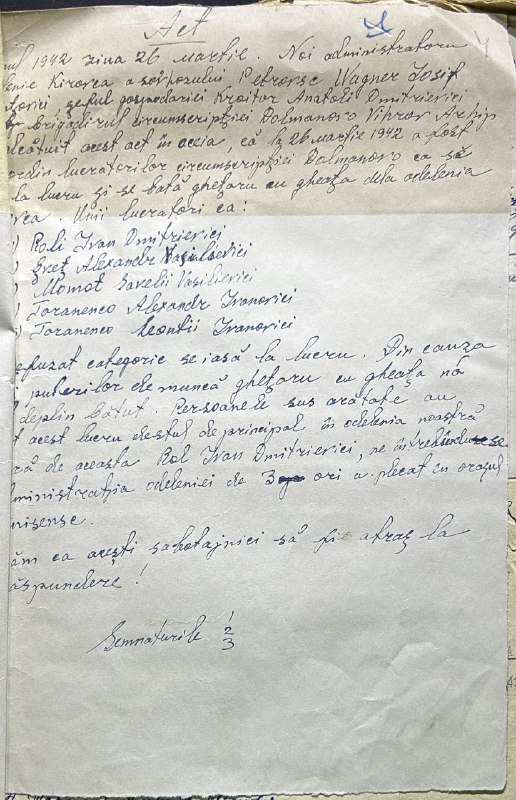 Act
ul 1942 ziua 26 Martie. Noi administratoru
Kirovca a sovhozului Petrovsc Wagner Iosif
șeful gospodariei Kroitor Anatoli Dmitrievici
Brigadirul circumscripției Dolmanovo Vihrov Arhip
lcătuit acest act în aceia, că la 26 martie 1942 a fost
ordin lucratorilor circumscripției Dolmanovo ca să
la lucru și se bată ghețaru cu gheața dela odelenia
vca. Unii lucratori ca:
) Roli Ivan Dmitrievici
) Greț Alexandr Vasilievici
) Momot Savelii Vasilievici
) Toranenco Alexandr Ivanovici
) Toranenco Leontii Ivanovici
efuzat categoric se iasă la lucru. Din cauza
puterilor de muncă ghețaru cu gheața nă
deplin bătut. Persoanele sus aratate au
t acest lucru destul de principal în odelenia noastră
ră de aceasta Rol Ivan Dmitrievici, ne întrebîndu-se
ministratția odeleniei de 3 ori a plecat in orașul
nisense.
ăm ca acești sabotajnici să fie atraș la
ăspundere!
Semnaturile 1
2
3